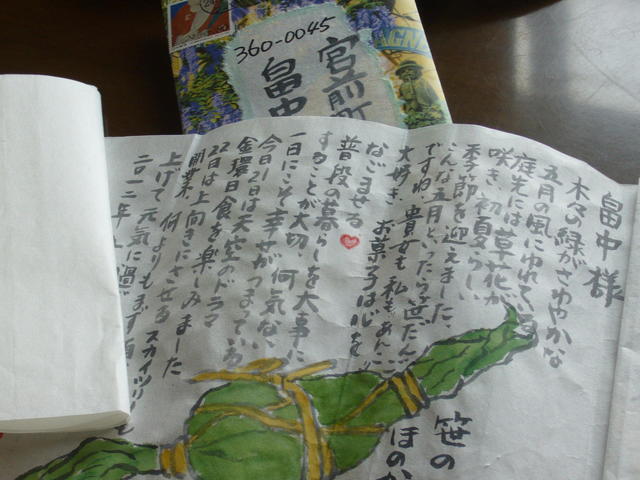 360-0045
宮前町
畠中
畠中様
木々の緑がさわやかな
五月の風にゆれている
庭先には草花が
咲き、初夏らしい
季節を迎えました。
こんな五月といったら笹だんご
ですね。貴女も私もあんこ
大好き お菓子は心を
なごませる
普段の暮らしを大事に
することが大切、何気ない
一日にこそ幸せがつまっている
今日21日は天空のドラマ
金環日食を楽しみました
22日は上向きにさせるスカイツリー
開業、何よりもまず
上げて元気に過
二〇一二年
笹の
ほのか